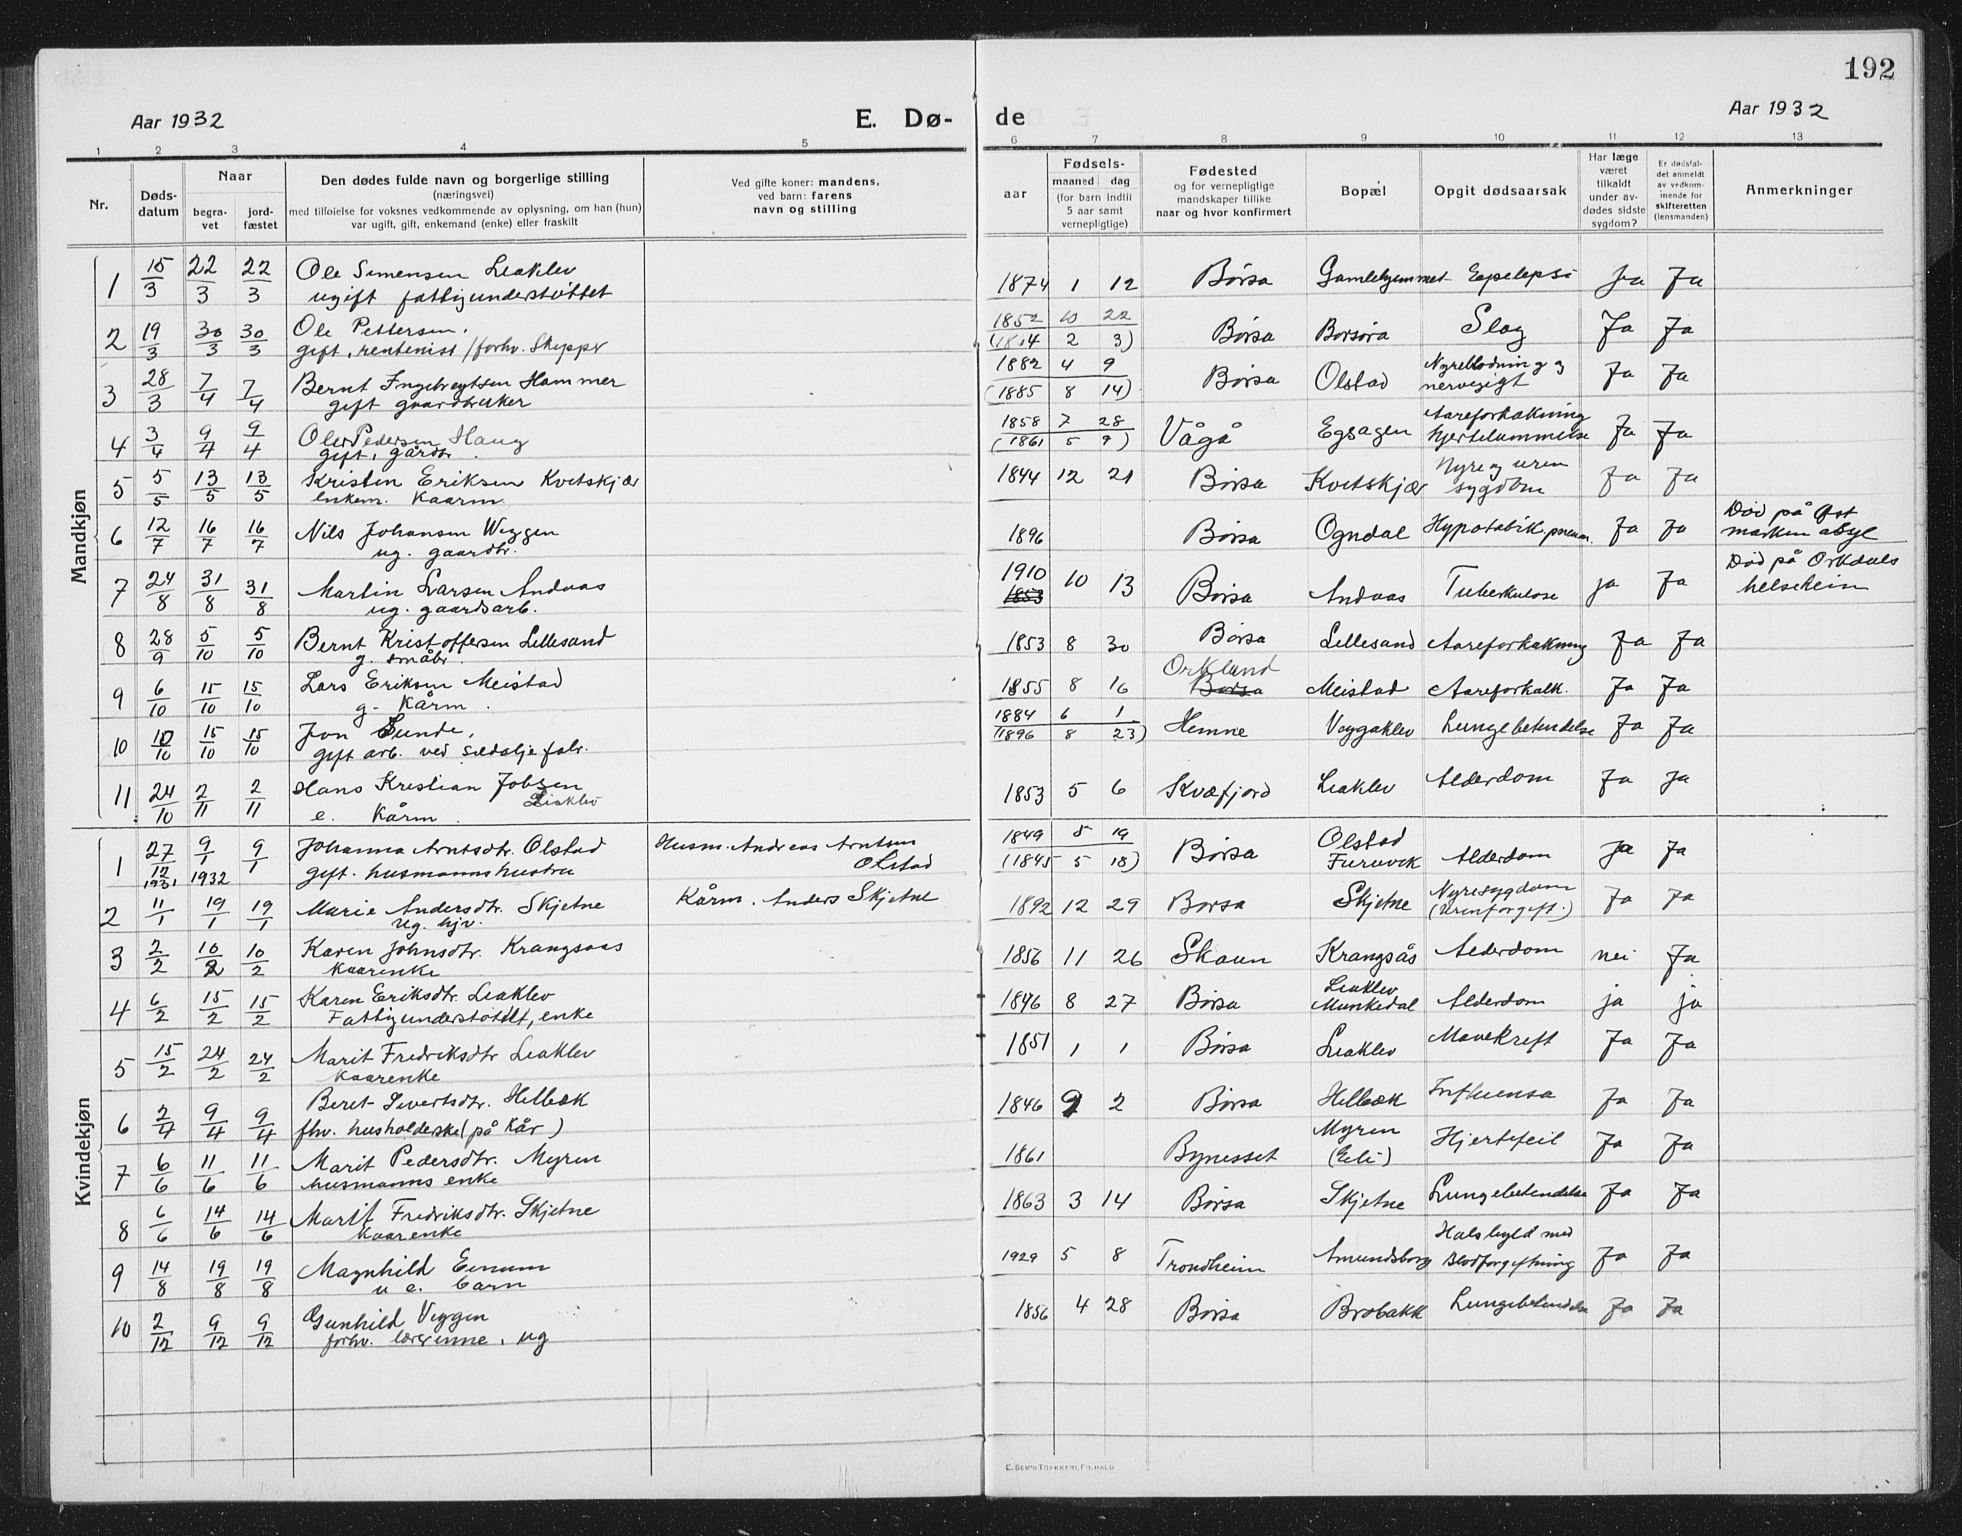 192
Aar 1932
E. Dø-
de
Aar 1932
1 2 3 4 5 6 7 8 9 10 11 12 13
Nr.
Døds-
datum
Naar
begra-
vet
jord-
fæstet
Den dødes fulde navn og borgerlige stilling
(næringsvei)
med tilføielse for voksnes vedkommende av oplysning, om han (hun)
var ugift, gift, enkemand (enke) eller fraskilt
Ved gifte koner: mandens,
ved barn: farens
navn og stilling
aar
Fødsels-
maaned dag
(for barn indtil
5 aar samt
vernepligtige)
Fødested
og for vernepligtige
mandskaper tillike
naar og hvor konfirmert
Bopæl
Opgit dødsaarsak
Har læge
været
tilkaldt
under av-
dødes sidste
sygdom?
Er dødsfal-
det anmeldt
av vedkom-
mende for
skifteretten
(lensmanden)
Anmerkninger
Mandkjøn
1 15/3 22/3 22/3 Ole Simensen Leaklev 1874 1 12 Børsa Gamlehjemmet Eepelepsi Ja Ja
ugift fattigunderstøttet
2 19/3 30/3 30/3 Ole Pettersen, 1852 10 22 Børsa Borsøra Slag Ja Ja
gift, rentenist / forhv. Skipper (1814 2 3)
3 28/3 7/4 7/4 Bernt Ingebregtsen Hammer 1882 4 9 Børsa Olstad Nyreblødning og Ja Ja
gift gaardbruker (1885 8 14) nervegigt
4 3/4 9/4 9/4 Ole Pedersen Haug 1858 7 28 Vågå Egsagen Aareforkalkning Ja Ja
gift, gårdbr. (1861 5 9) hjertelammelse
5 5/5 13/5 13/5 Kristen Eriksen Kvetskjær 1844 12 21 Børsa Kvetskjær Nyre og urin Ja Ja
enkem. Kaarm. sygdom
6 12/7 16/7 16/7 Nils Johansen Viggen 1896 Børsa Ogndal Hypotabik pneum. Ja Ja Død på Øst
ug. gaardbr. marken asyl
7 24/8 31/8 31/8 Martin Larsen Andvaas 1910 10 13 Børsa Andvaas Tuberkulose ja Ja Død på Orkdals
ug. gaardsarb. 1853 helseheim
8 28/9 5/10 5/10 Bernt Kristoffersen Lillesand 1853 8 30 Børsa Lellesand Aareforkalkning Ja Ja
g. småbr.
9 6/10 15/10 15/10 Lars Eriksen Meistad 1855 8 16 Orkland Børsa Meistad Aareforkalk. Ja Ja
g. Kårm.
10 10/10 15/10 15/10 Jon Sunde, 1884 6 1 Hemne Viggaklev Lungebetendelse Ja Ja
gift arb. ved sildolje fabr. (1896 8 23)
11 24/10 2/11 2/11 Hans Kristian Jobsen 1853 5 6 Kvæfjord Leaklev Alderdom Ja Ja
e. Kårm. Leaklev
Kvindekjøn
1 27/12 1931 9/1 1932 9/1 Johanna Arntsdtr. Olstad Husm. Andreas Arntsen 1849 5 19 Børsa Olstad Alderdom Ja Ja
gift. husmannshustru Olstad (1845 5 18) Furuvik
2 11/1 19/1 19/1 Marie Andersdtr. Skjetne Kårm. Anders Skjetne 1892 12 29 Børsa Skjetne Nyresygdom Ja Ja
ug. hjv. (Urinforgift.)
3 2/2 10/2 10/2 Karen Johnsdtr. Krangsaas 1856 11 26 Skaun Krangsås Alderdom nei Ja
Kaarenke
4 6/2 15/2 15/2 Karen Eriksdtr. Leaklev 1846 8 27 Børsa Leaklev Alderdom ja ja
Fattigunderstøttet, enke Munkedal
5 15/2 24/2 24/2 Marit Fredriksdtr Leaklev 1851 1 1 Børsa Leaklev Mavekreft Ja Ja
Kaarenke
6 2/4 9/4 9/4 Beret Sivertsdtr. Helbæk 1846 9 2 Børsa Helbæk Influensa Ja Ja
fhv. husholderske (på kår)
7 6/6 11/6 11/6 Marit Pedersdtr. Myren 1861 Bynesset Myren Hjertefeil Ja Ja
husmanns enke (Eeli)
8 6/6 14/6 14/6 Marit Fredriksdtr. Skjetne 1863 3 14 Børsa Skjetne Lungebetendelse Ja Ja
Kaarenke
9 14/8 19/8 19/8 Magnhild Einum 1929 5 8 Trondheim Amundsborg Halsbyld med Ja Ja
u e. barn Blodforgiftning
10 2/12 9/12 9/12 Gunhild Viggen 1856 4 28 Børsa Brobakk Lungebetendelse Ja Ja
forhv. lærerinne, ug
E. SEM'S TRYKKERI, F.HALD